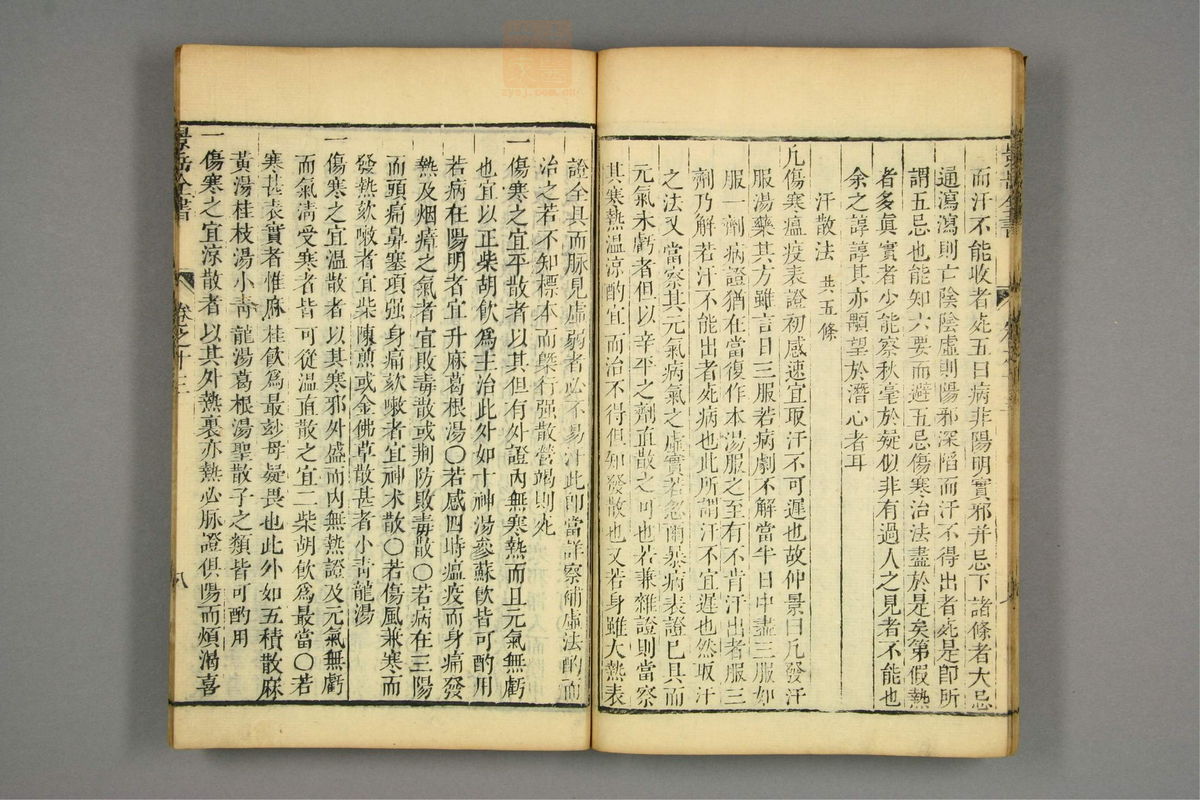 而汗不能收者死五曰病非陽明實邪并忌下諸條者大忌
通瀉瀉則亡陰陰虛則陽邪深陷而汗不得出者死是卽所
謂五忌也能知六要而避五忌傷寒治法盡於是矣第假熱
者多眞實者少能察秋毫於疑似非有過人之見者不能也
余之諄諄其亦顒望於潛心者耳
汗散法 共五條
凡傷寒瘟疫表證初感速宜取汗不可遲也故仲景曰凡發汗
服湯藥其方雖言日三服若病劇不解當半日中盡三服如
服一劑病證猶在當復作本湯服之至有不肯汗出者服三
劑乃解若汗不能出者死病也此所謂汗不宜遲也然取汗
之法又當察其元氣病氣之虛實若忽爾暴病表證已具而
元氣未虧者但以辛平之劑直散之可也若兼雜證則當察
其寒熱溫涼酌宜而治不得但知發散也又若身雖大熱表
證全具而脉見虛弱者必不易汗此卽當詳察補虛法酌而
治之若不知標本而槩行强散營竭則死
一傷寒之宜平散者以其但有外證內無寒熱而且元氣無虧
也宜以正柴胡飲爲主治此外如十神湯參蘇飲皆可酌用
若病在陽明者宜升麻葛根湯○若感四時瘟疫而身痛發
熱及烟瘴之氣者宜敗毒散或荆防敗毒散○若病在三陽
而頭痛鼻塞項强身痛欬嗽者宜神术散○若傷風兼寒而
發熱欬嗽者宜柴陳煎或金佛草散甚者小靑龍湯
一傷寒之宜溫散者以其寒邪外盛而內無熱證及元氣無虧
而氣淸受寒者皆可從溫直散之宜二柴胡飲爲最當○若
寒甚表實者惟麻桂飲爲最玅毋疑畏也此外如五積散麻
黃湯桂枝湯小靑龍湯葛根湯聖散子之類皆可酌用
一傷寒之宜涼散者以其外熱裏亦熱必脉證俱陽而煩渴喜
景岳全書
卷之十三
八
景岳全書